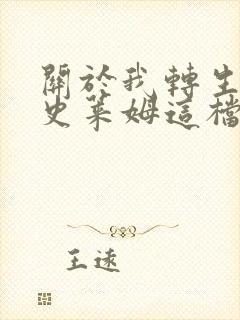 關於我轉生
史萊姆這檔
王遠